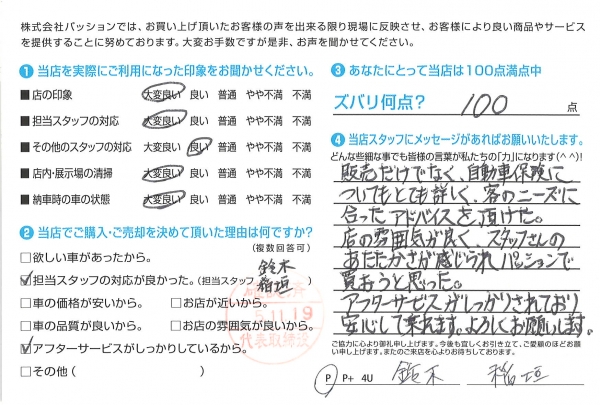 株式会社パッションでは、お買い上げ頂いたお客様の声を出来る限り現場に反映させ、お客様により良い商品やサービス
を提供することに努めております。大変お手数ですが是非、お声を聞かせてください。
❶ 当店を実際にご利用になった印象をお聞かせください。
■ 店の印象 大変良い 良い 普通 やや不満 不満
■ 担当スタッフの対応 大変良い 良い 普通 やや不満 不満
■ その他のスタッフの対応 大変良い 良い 普通 やや不満 不満
■ 店内・展示場の清掃 大変良い 良い 普通 やや不満 不満
■ 納車時の車の状態 大変良い 良い 普通 やや不満 不満
❷ 当店でご購入・ご売却を決めて頂いた理由は何ですか?
(複数回答可)
□欲しい車があったから。
☑担当スタッフの対応が良かった。(担当スタッフ 鈴木 稲垣 )
□車の価格が安いから。 □お店が近いから。
□車の品質が良いから。 □お店の雰囲気が良いから。
☑アフターサービスがしっかりしているから。
□その他 ( )
確認済
5.11.19
代表取締役
❸ あなたにとって当店は100点満点中
ズバリ何点? 100 点
❹ 当店スタッフにメッセージがあればお願いいたします。
どんな些細な事でも皆様の言葉が私たちの「力」になります(^^)!
販売だけでなく、自動車保険に
ついてもとても詳しく、客のニーズに
合ったアドバイスを頂けた。
店の雰囲気が良く、スタッフさんの
あたたかさが感じられパッションで
買おうと思った。
アフターサービスがしっかりされており
安心して乗れます。よろしくお願いします。
ご協力に心より御礼申し上げます。今後も宜しくお引き立て、ご愛顧のほどお願
い申し上げます。またのご来店を心よりお待ちしております。
P P+ 4U 鈴木 稲垣